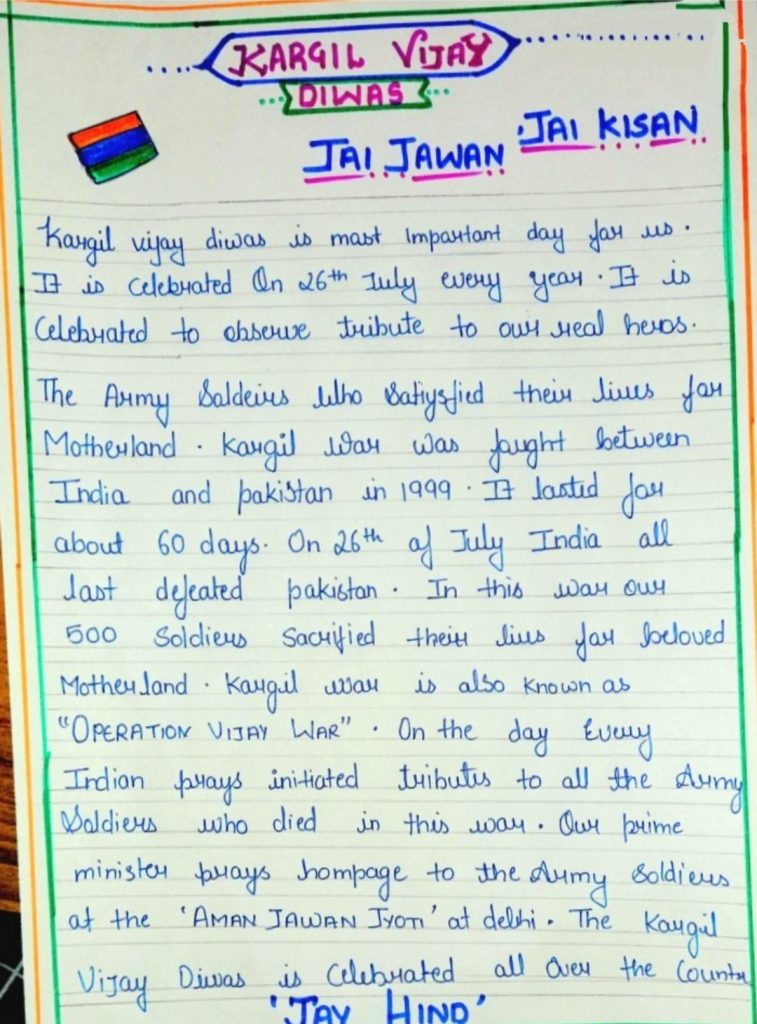 KARGIL VIJAY
DIWAS
JAI JAWAN JAI KISAN
Kargil vijay diwas is mast Impartant day far us.
It is Celebrated On 26th July every year. It is
Celebrated to observe tribute to our real heros.
The Army Saldeirs who Satiysfied their lives far
Motherland. Kargil War was faught between
India and pakistan in 1999. It lasted far
about 60 days. On 26th of July India all
last defeated pakistan. In this war our
500 Soldiers Sacrified their lives far beloved
Motherland. Kargil war is also known as
"OPERATION VIJAY WAR". On the day Every
Indian prays initiated tributes to all the Army
Soldiers who died in this war. Our prime
minister prays hompage to the Army Soldiers
at the 'AMAN JAWAN JYOTI' at delhi. The Kargil
Vijay Diwas is Celebrated all Over the Countr
'JAY HIND'